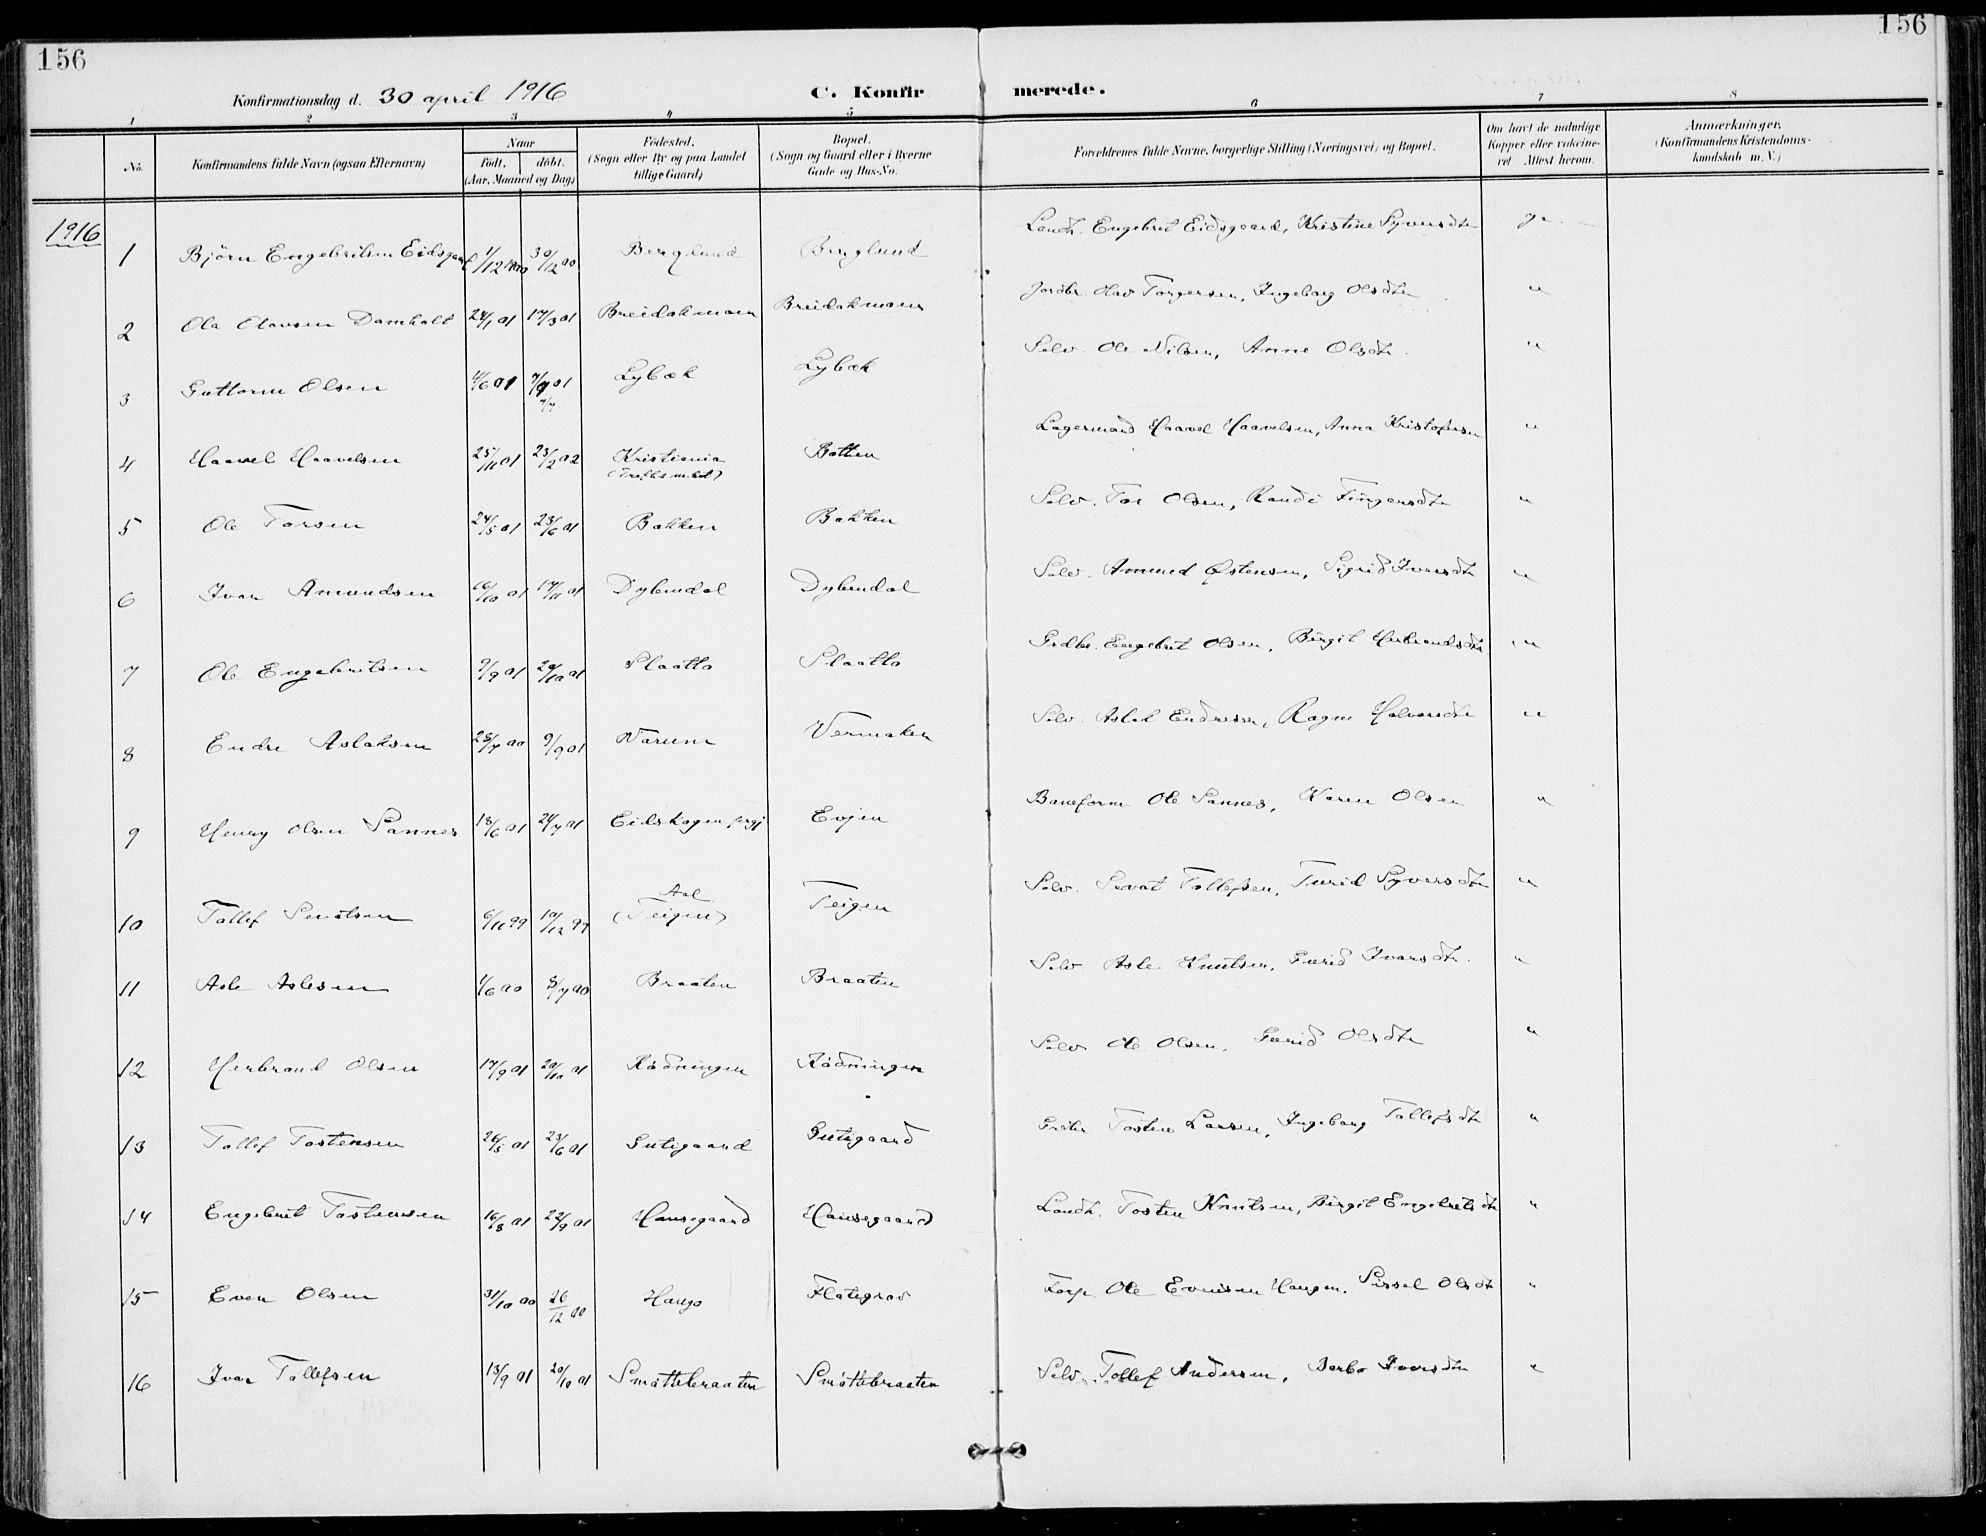 156
156
Konfirmationsdag d. 30 april 1916
C. Konfirmerede.
1 2 3 4 5 6 7 8
No.
Konfirmandens fulde Navn (ogsaa Efternavn)
Naar
født. døbt.
(Aar, Maaned og Dag)
Fødested.
(Sogn eller By og paa Landet
tillige Gaard)
Bopæl.
(Sogn og Gaard eller i Byerne
Gade og Hus-No.
Forældrenes fulde Navne, borgerlige Stilling (Næringsvei) og Bopæl.
Om havt de naturlige
Kopper eller vakcine-
ret Attest herom.
Anmærkninger.
(Konfirmandens Kristendoms-
kundskab m. V.)
1916
1 Björn Engebritsen Eidsgaard 1/12 1900 30/12 00 Berglund Berglund Landh. Engebret Eidsgaard, Kristine Syversdtr Ja
2 Ola Olavsen Damholt 24/1 01 17/3 01 Breidokmoen Breidokmoen Jordbr. Olav Torgersen, Ingeborg Olsdtr "
3 Guttorm Olsen 4/6 01 7/7 01 Lybæk Lybæk Selv. Ole Nilsen, Anne Olsdtr. "
7/7
4 Haavel Haavelsen 25/11 01 23/2 02 Kristiania Botten Lagermand Haavel Haavelsen, Anna Kristofersen "
5 Ole Torsen 24/5 01 23/6 01 Bakken Bakken Selv. Tor Olsen, Randi Fingarsdtr "
6 Ivar Amundsen 16/10 01 17/11 01 Dybendal Dybendal Selv. Amund Østensen, Sigrid Ivarsdtr "
7 Ole Engebritsen 9/9 01 20/10 01 Slaatto Slaatto Grdbr. Engebret Olsen, Birgit Herbrandsdtr "
8 Endre Aslaksen 28/7 00 9/9 01 Warum Vermaken Selv. Aslak Endresen, Ragne Halvorsdtr "
9 Henry Olsen Sannes 18/6 01 24/7 01 Eidskogen prgj Evjen Baneform Ole Sannes, Karen Olsen "
10 Tollef Sevatsen 6/11 99 10/12 99 Aal (Teigen) Teigen Selv. Sevat Tollefsen, Turid Syversdtr "
11 Asle Aslesen 1/6 00 8/7 00 Braaten Braaten Selv Asle Knutsen, Guri​d Ivarsdtr. "
12 Herbrand Olsen 17/9 01 20/10 01 Rödningen Rödningen Selv Ole Olsen, Gurid Olsdtr "
13 Tollef Tostensen 26/5 01 23/6 01 Gutegaard Gutegaard Grdbr Tosten Larsen, Ingeborg Tollefsdtr "
14 Engebret Tostensen 16/8 01 22/9 01 Hansegaard Hansegaard Landh. Tosten Knutsen, Birgit Engebretsdtr "
15 Even Olsen 31/10 00 26/12 00 Haugo Flategrav Forp. Ole Evensen Haugen, Sissel Olsdtr "
16 Ivar Tollefsen 13/9 01 20/10 01 Smöttebraaten Smöttebraaten Selv. Tollef Andersen, Barbo Ivarsdtr "